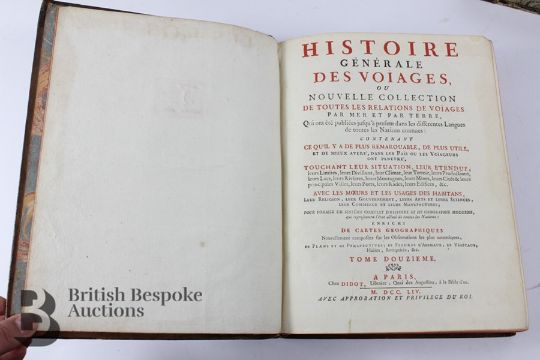 HISTOIRE
GÉNÉRALE
DES VOIAGES,
OU
NOUVELLE COLLECTION
DE TOUTES LES RELATIONS DE VOIAGES
PAR MER ET PAR TERRE,
Qui ont été publiées jusqu'à présent dans les différentes Langues
de toutes les Nations connues:
CONTENANT
CE QU'IL Y A DE PLUS REMARQUABLE, DE PLUS UTILE,
ET DE MIEUX AVERÉ, DANS LES PAÏS OU LES VOIAGEURS
ONT PENETRÉ,
TOUCHANT LEUR SITUATION, LEUR ETENDUE,
leurs Limites, leurs Divisions, leur Climat, leur Terroir, leurs Productions,
leurs Lacs, leurs Rivieres, leurs Montagnes, leurs Mines, leurs Cités & leurs
principales Villes, leurs Ports, leurs Rades, leurs Edifices, &c.
AVEC LES MŒURS ET LES USAGES DES HABITANS,
LEUR RELIGION, LEUR GOUVERNEMENT, LEURS ARTS ET LEURS SCIENCES,
LEUR COMMERCE ET LEURS MANUFACTURES;
POUR FORMER UN SYSTÊME COMPLET D'HISTOIRE ET DE GEOGRAPHIE MODERNE,
qui représentera l'état actuel de toutes les Nations:
ENRICHI
DE CARTES GEOGRAPHIQUES
Nouvellement composées sur les Observations les plus autentiques,
DE PLANS ET DE PERSPECTIVES; DE FIGURES D'ANIMAUX, DE VEGETAUX,
Habits, Antiquités, &c.
TOME DOUZIEME.
A PARIS,
Chez DIDOT, Libraire, Quai des Augustins, à la Bible d'or.
M. DCC. LIV.
AVEC APPROBATION ET PRIVILEGE DU ROI.
British Bespoke
Auctions